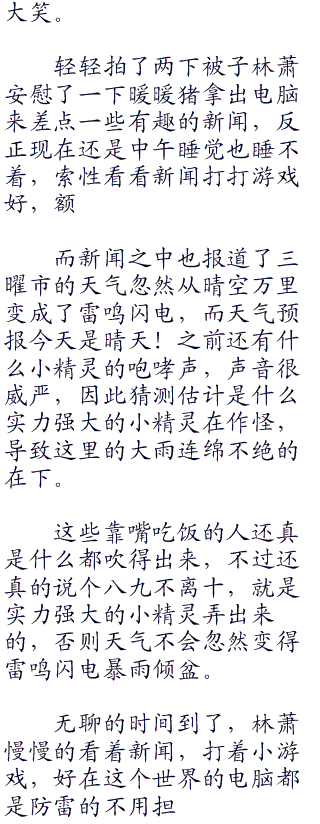 大笑。
轻轻拍了两下被子林萧
安慰了一下暖暖猪拿出电脑
来差点一些有趣的新闻，反
正现在还是中午睡觉也睡不
着，索性看看新闻打打游戏
好，额
而新闻之中也报道了三
曜市的天气忽然从晴空万里
变成了雷鸣闪电，而天气预
报今天是晴天！之前还有什
么小精灵的咆哮声，声音很
威严，因此猜测估计是什么
实力强大的小精灵在作怪，
导致这里的大雨连绵不绝的
在下。
这些靠嘴吃饭的人还真
是什么都吹得出来，不过还
真的说个八九不离十，就是
实力强大的小精灵弄出来
的，否则天气不会忽然变得
雷鸣闪电暴雨倾盆。
无聊的时间到了，林萧
慢慢的看着新闻，打着小游
戏，好在这个世界的电脑都
是防雷的不用担